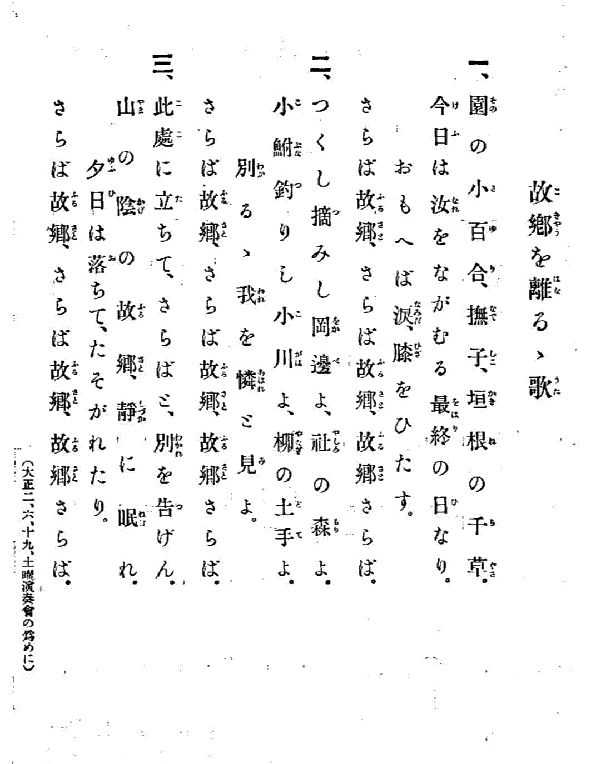 故鄕を離るゝ歌
一、園の小百合、撫子、垣根の千草。
今日は汝をながむる最終の日なり。
おもへば涙、膝をひたす。
さらば故鄕、さらば故鄕、故鄕さらば。
二、つくし摘みし岡邊よ、社の森よ。
小鮒釣りし小川よ、柳の土手よ。
別るゝ我を憐と見よ。
さらば故鄕、さらば故鄕、故鄕さらば。
三、此處に立ちて、さらばと、別を告げん。
山の陰の故鄕、靜に眠れ。
夕日は落ちて、たそがれたり。
さらば故鄕、さらば故鄕、故鄕さらば。
（大正二、六、十九、土曜演奏會の爲めに）